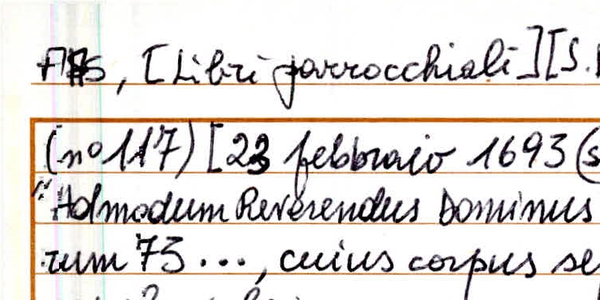 [Libri parrocchiali] [S.
(n° 117) [23 febbraio 1693 (s
"Admodum Reverendus Dominus
rum 73..., cuius corpus se